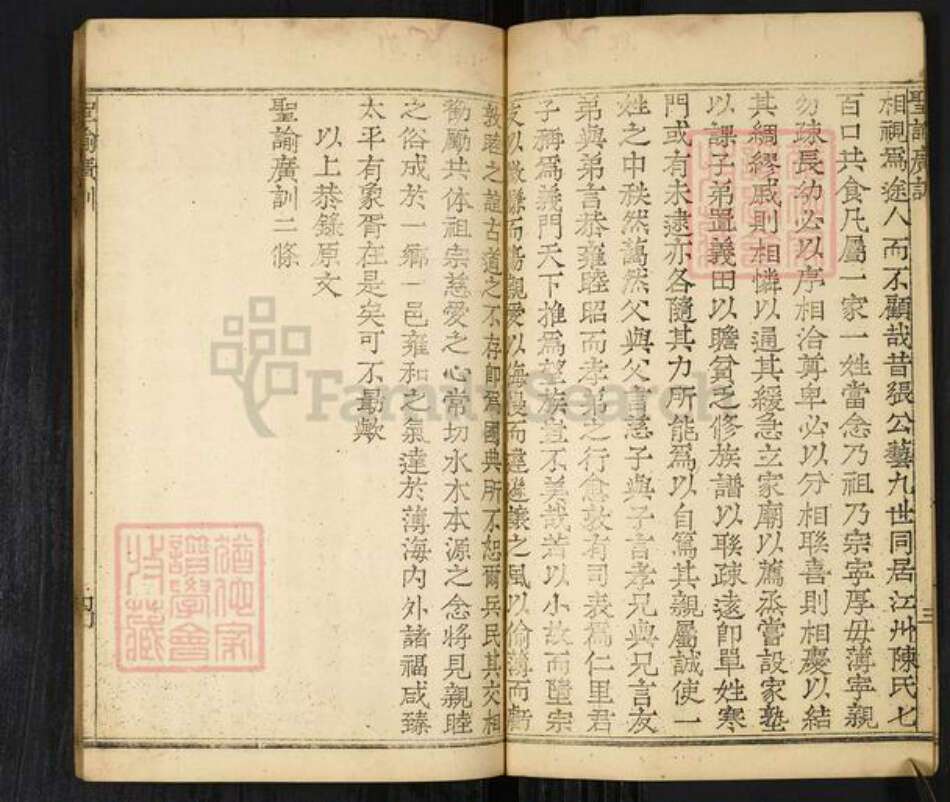 聖諭廣訓
相視為途人而不顧哉昔張公藝九世同居江州陳氏七
百口共食凡屬一家一姓當念乃祖乃宗寧厚毋薄寧親
勿疎長幼必以序相洽尊卑必以分相聯喜則相慶以結
其綢繆戚則相憐以通其緩急立家廟以薦烝嘗設家塾
以課子弟置義田以贍貧乏修族譜以聯疎遠卽單姓寒
門或有未逮亦各隨其力所能為以自篤其親屬誠使一
姓之中秩然藹然父與父言慈子與子言孝兄與兄言友
弟與弟言恭雍睦昭而孝弟之行愈敦有司表為仁里君
子稱為義門天下推為望族豈不美哉若以小故而隳宗
支以微嫌而傷親愛以侮慢而違遜讓之風以偷薄而虧
敦睦之誼古道之不存卽為國典所不恕爾兵民其交相
勸勵共体祖宗慈愛之心常切水木本源之念將見親睦
之俗成於一鄉一邑雍和之氣達於薄海內外諸福咸臻
太平有象胥在是矣可不勗歟
以上恭錄原文
聖諭廣訓二條
聖諭廣訓
三
四
FamilySearch
譜學會
收藏